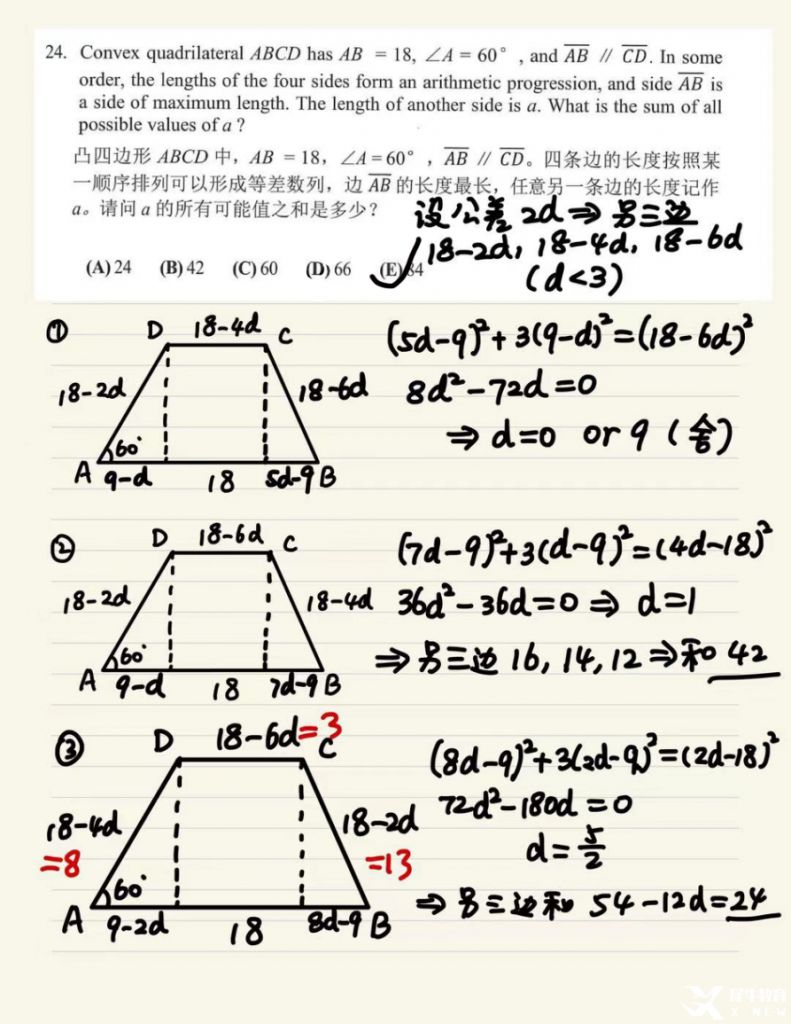 24. Convex quadrilateral ABCD has AB = 18, ∠A = 60° , and AB // CD. In some
order, the lengths of the four sides form an arithmetic progression, and side AB is
a side of maximum length. The length of another side is a. What is the sum of all
possible values of a ?
凸四边形 ABCD 中，AB = 18，∠A = 60° ，AB // CD。四条边的长度按照某
一顺序排列可以形成等差数列，边 AB 的长度最长，任意另一条边的长度记作
a。请问 a 的所有可能值之和是多少？
设公差 2d ⇒ 另三边
18-2d, 18-4d, 18-6d
(d<3)
(A) 24 (B) 42 (C) 60 (D) 66 (E) 84
①
D 18-4d C
18-2d
18-6d
60°
A 9-d 18 5d-9 B
(5d-9)²+3(9-d)²=(18-6d)²
8d²-72d=0
⇒ d=0 or 9 (舍)
②
D 18-6d C
18-2d
18-4d
60°
A 9-d 18 7d-9 B
(7d-9)²+3(d-9)²=(4d-18)²
36d²-36d=0 ⇒ d=1
⇒ 另三边 16, 14, 12 ⇒ 和 42
③
D 18-6d=3 C
18-4d
=8
18-2d
=13
60°
A 9-2d 18 8d-9 B
(8d-9)²+3(2d-9)²=(2d-18)²
72d²-180d=0
d=5/2
⇒ 另三边和 54-12d=24
X NEW